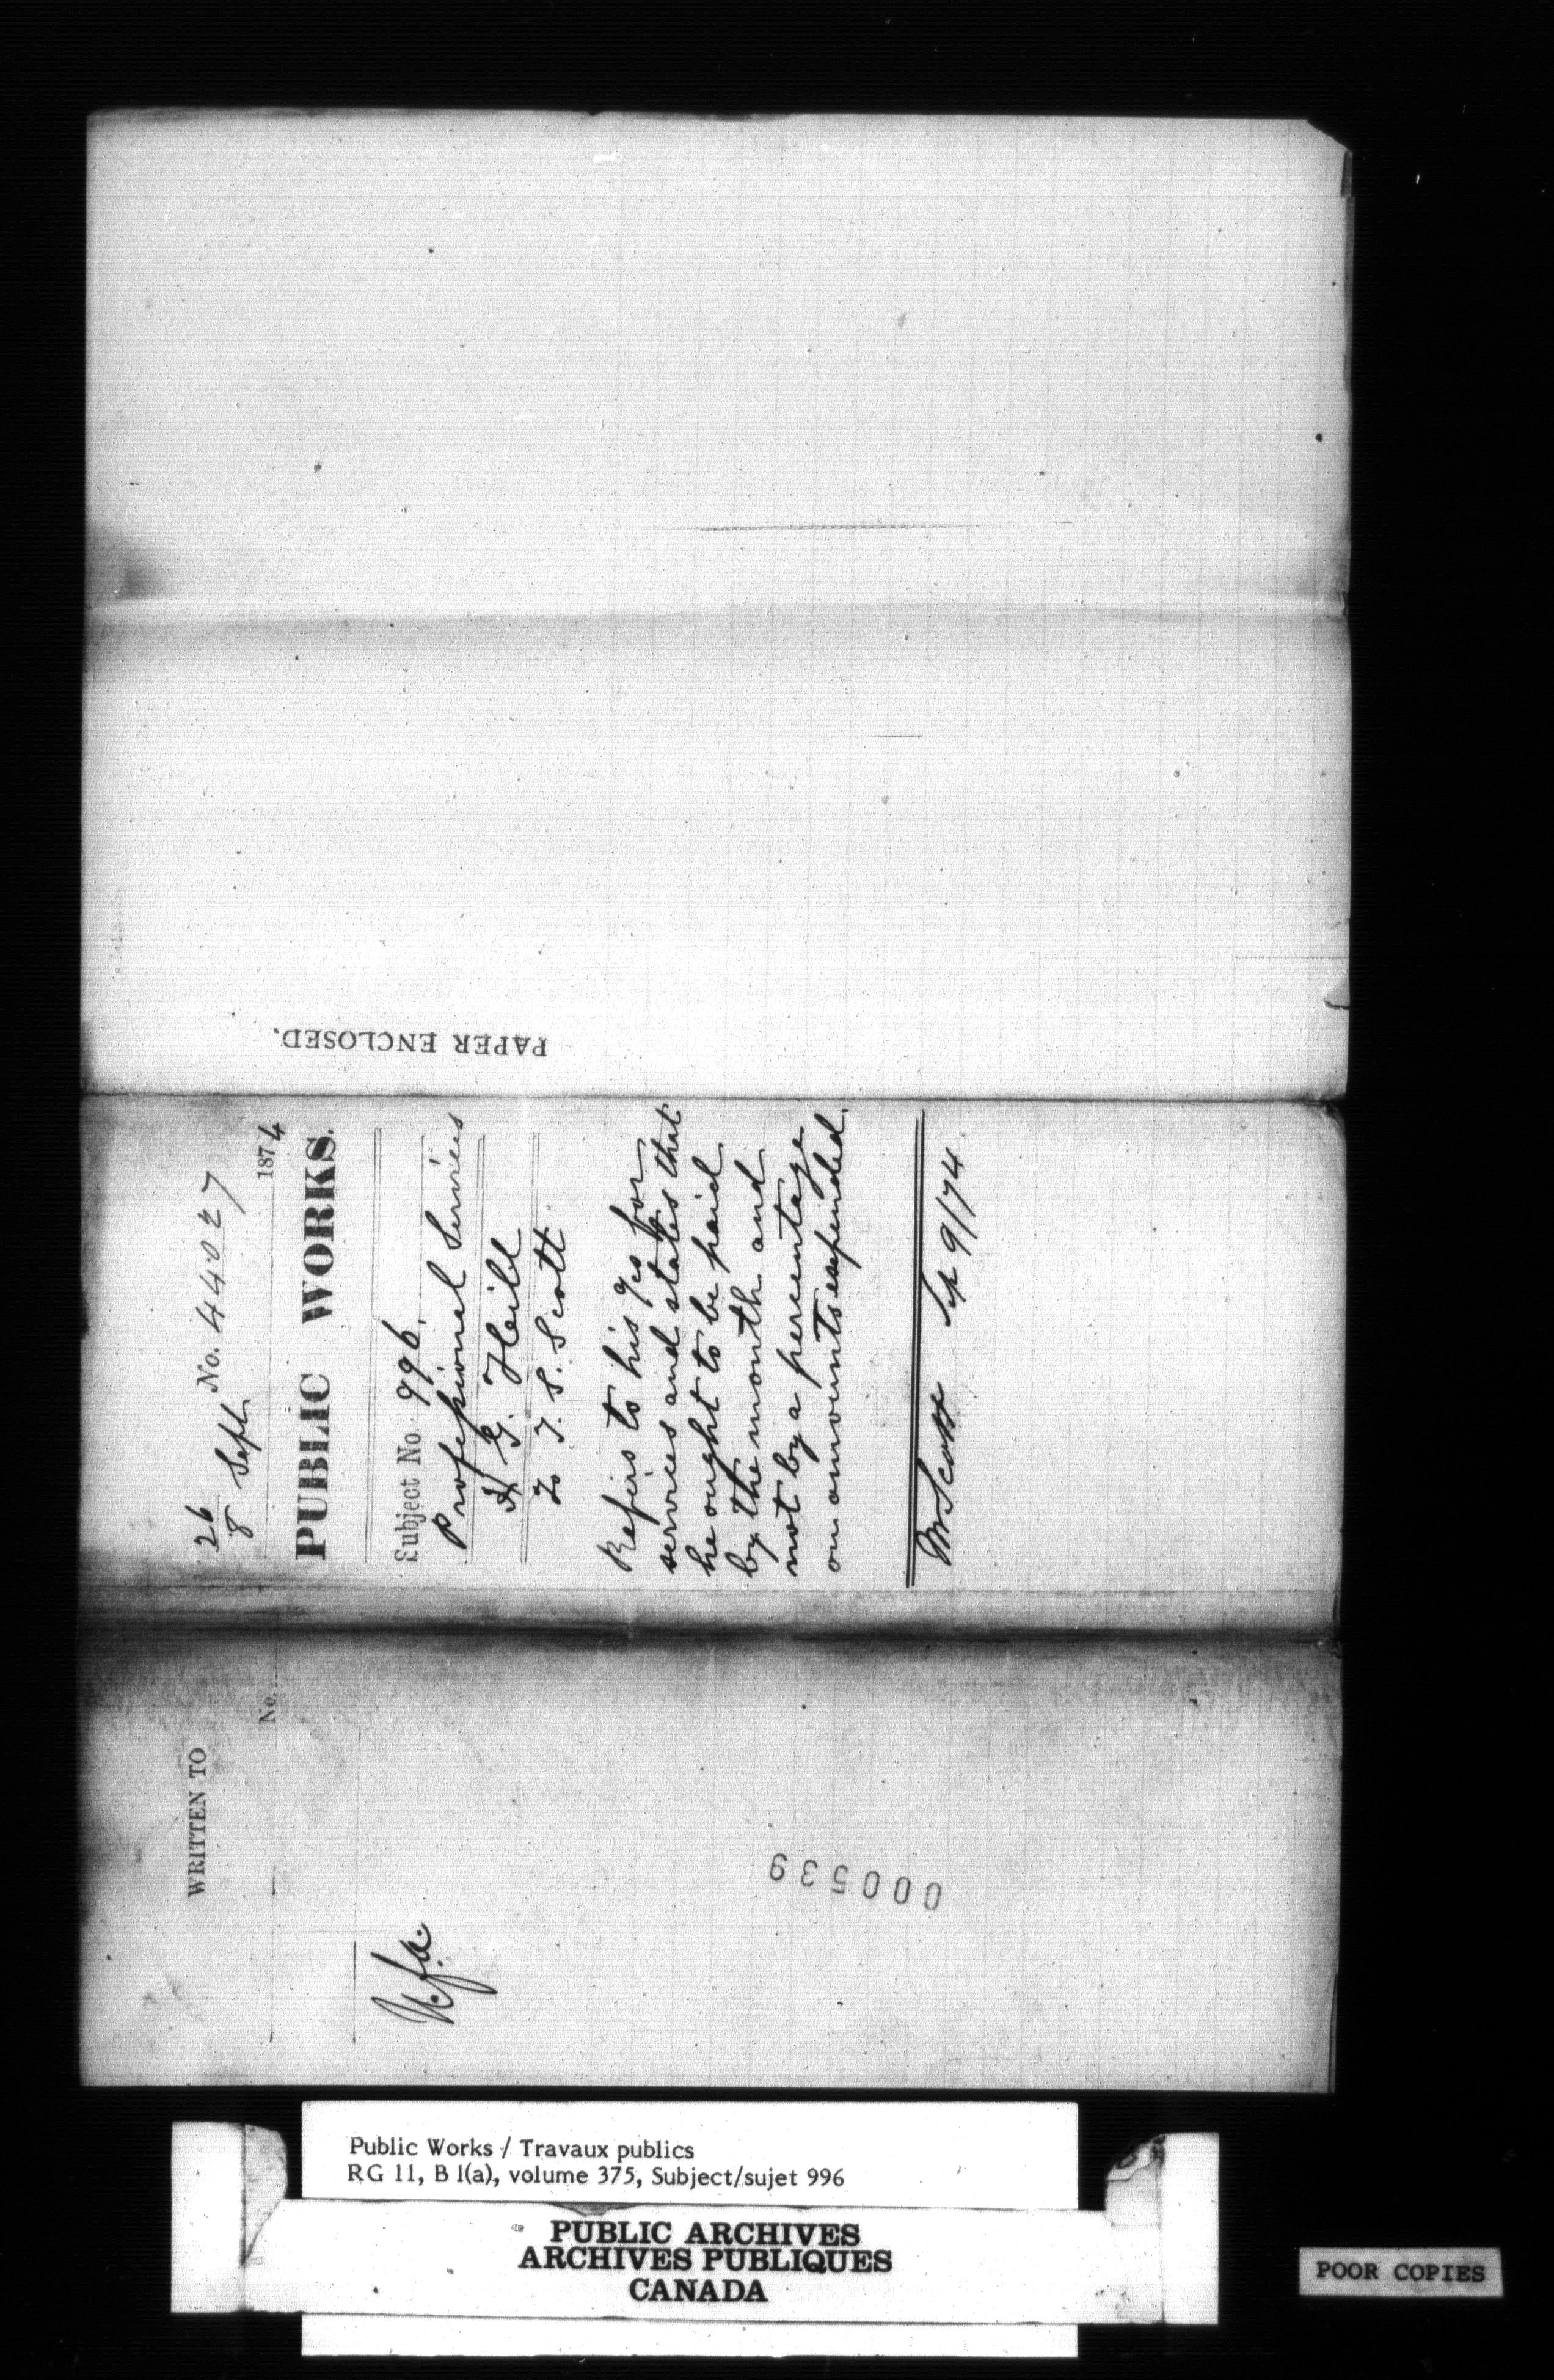 PAPER ENCLOSED.
26
8 Sept. No. 44027
1874
PUBLIC WORKS.
Subject No. 996.
Professional Services
H. G. Heill
To T. S. Scott
Refers to his a/cs for
services and states that
he ought to be paid
by the month and
not by a percentage
on amounts expended.
Mr Scott Sep 9/74
WRITTEN TO
No.
N.f.a.
000539
Public Works / Travaux publics
RG 11, B 1(a), volume 375, Subject/sujet 996
PUBLIC ARCHIVES
ARCHIVES PUBLIQUES
CANADA
POOR COPIES